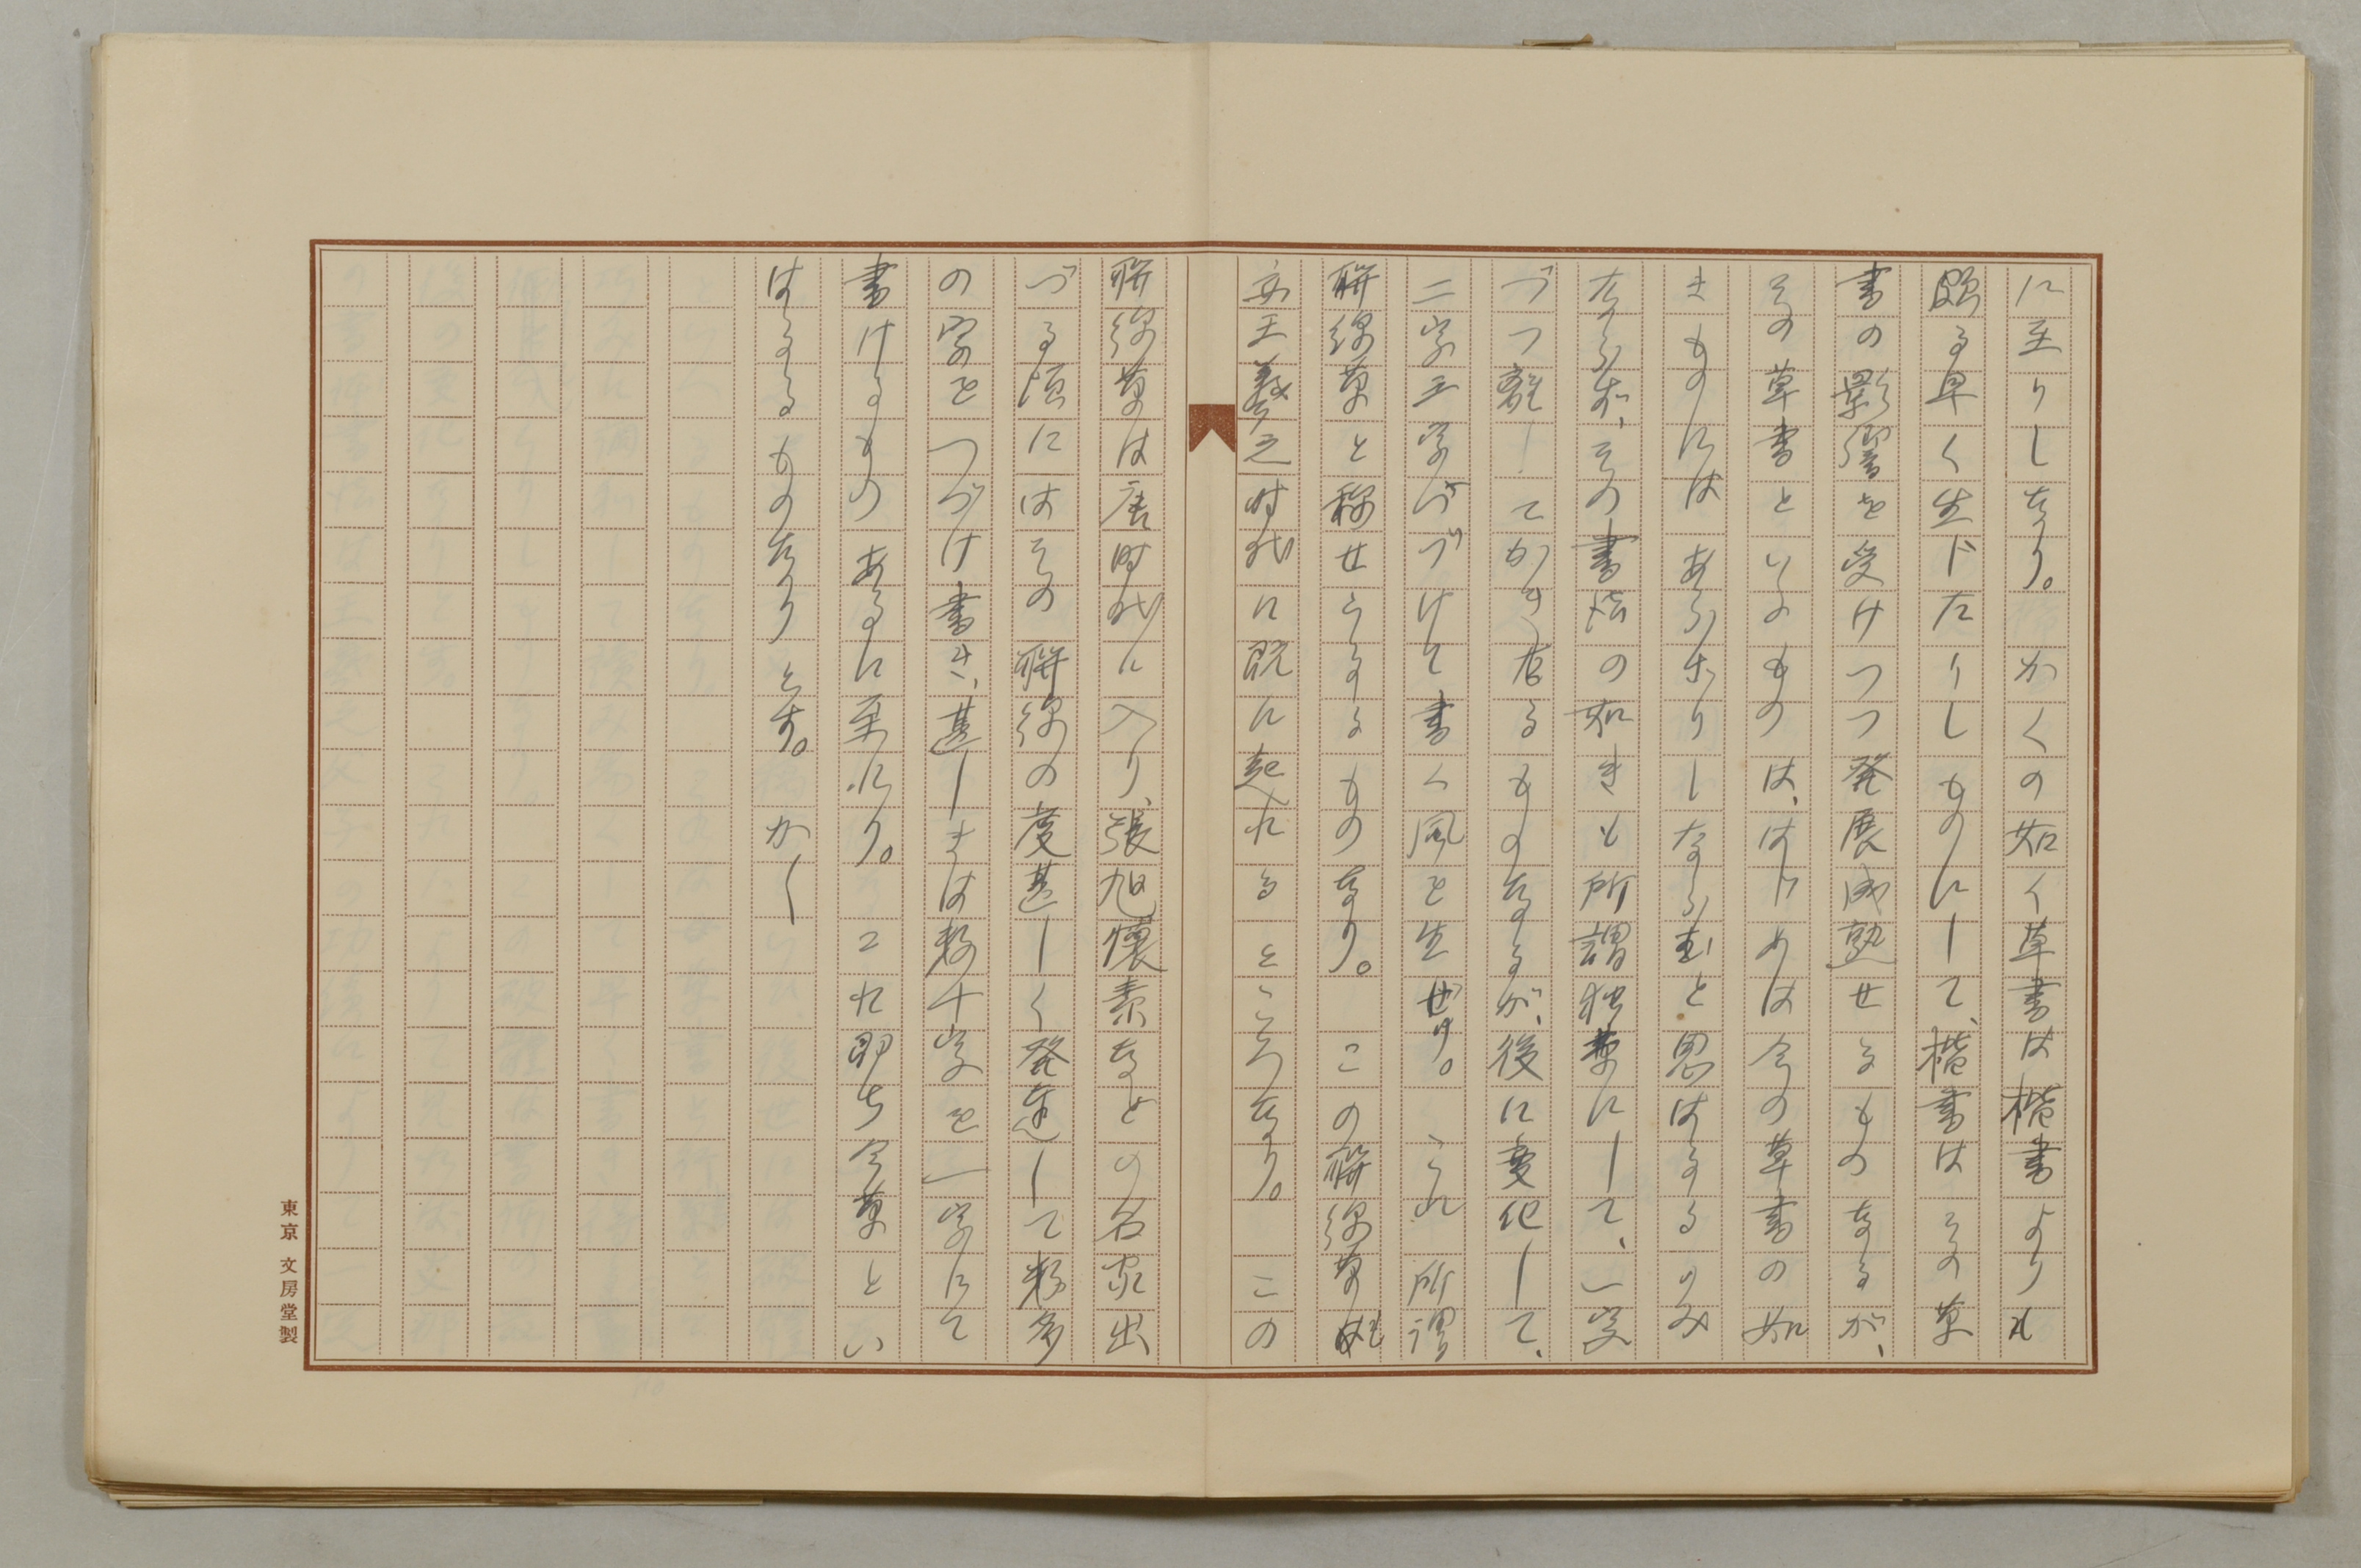 に至りしなり。かくの如く草書は楷書よりも
頗る早く生じたりしものにして、楷書はその草
書の影響を受けつつ発展成熟せるものなるが、
その草書といふものは、はじめは今の草書の如
きものにはあらざりしならむと思はるるのみ
ならず、その書法の如きも所謂独草にして、一字
づつ離してかき居るものなるが、後に変化して、
二字三字づつづけて書く風を生ぜり。これ所謂
聯綿草と称せらるるものなり。この聯綿草も
亦王羲之時代に既に起れるところなり。この
聯綿草は唐時代に入り、張旭懐素などの名家出
づる頃にはその聯綿の度甚しく発達して数多
の字をつづけ書き、甚しきは数十字を一字にて
書けるものあるに至れり。これ即ち今草とい
はるるものなりとす。かし
東京 文房堂製